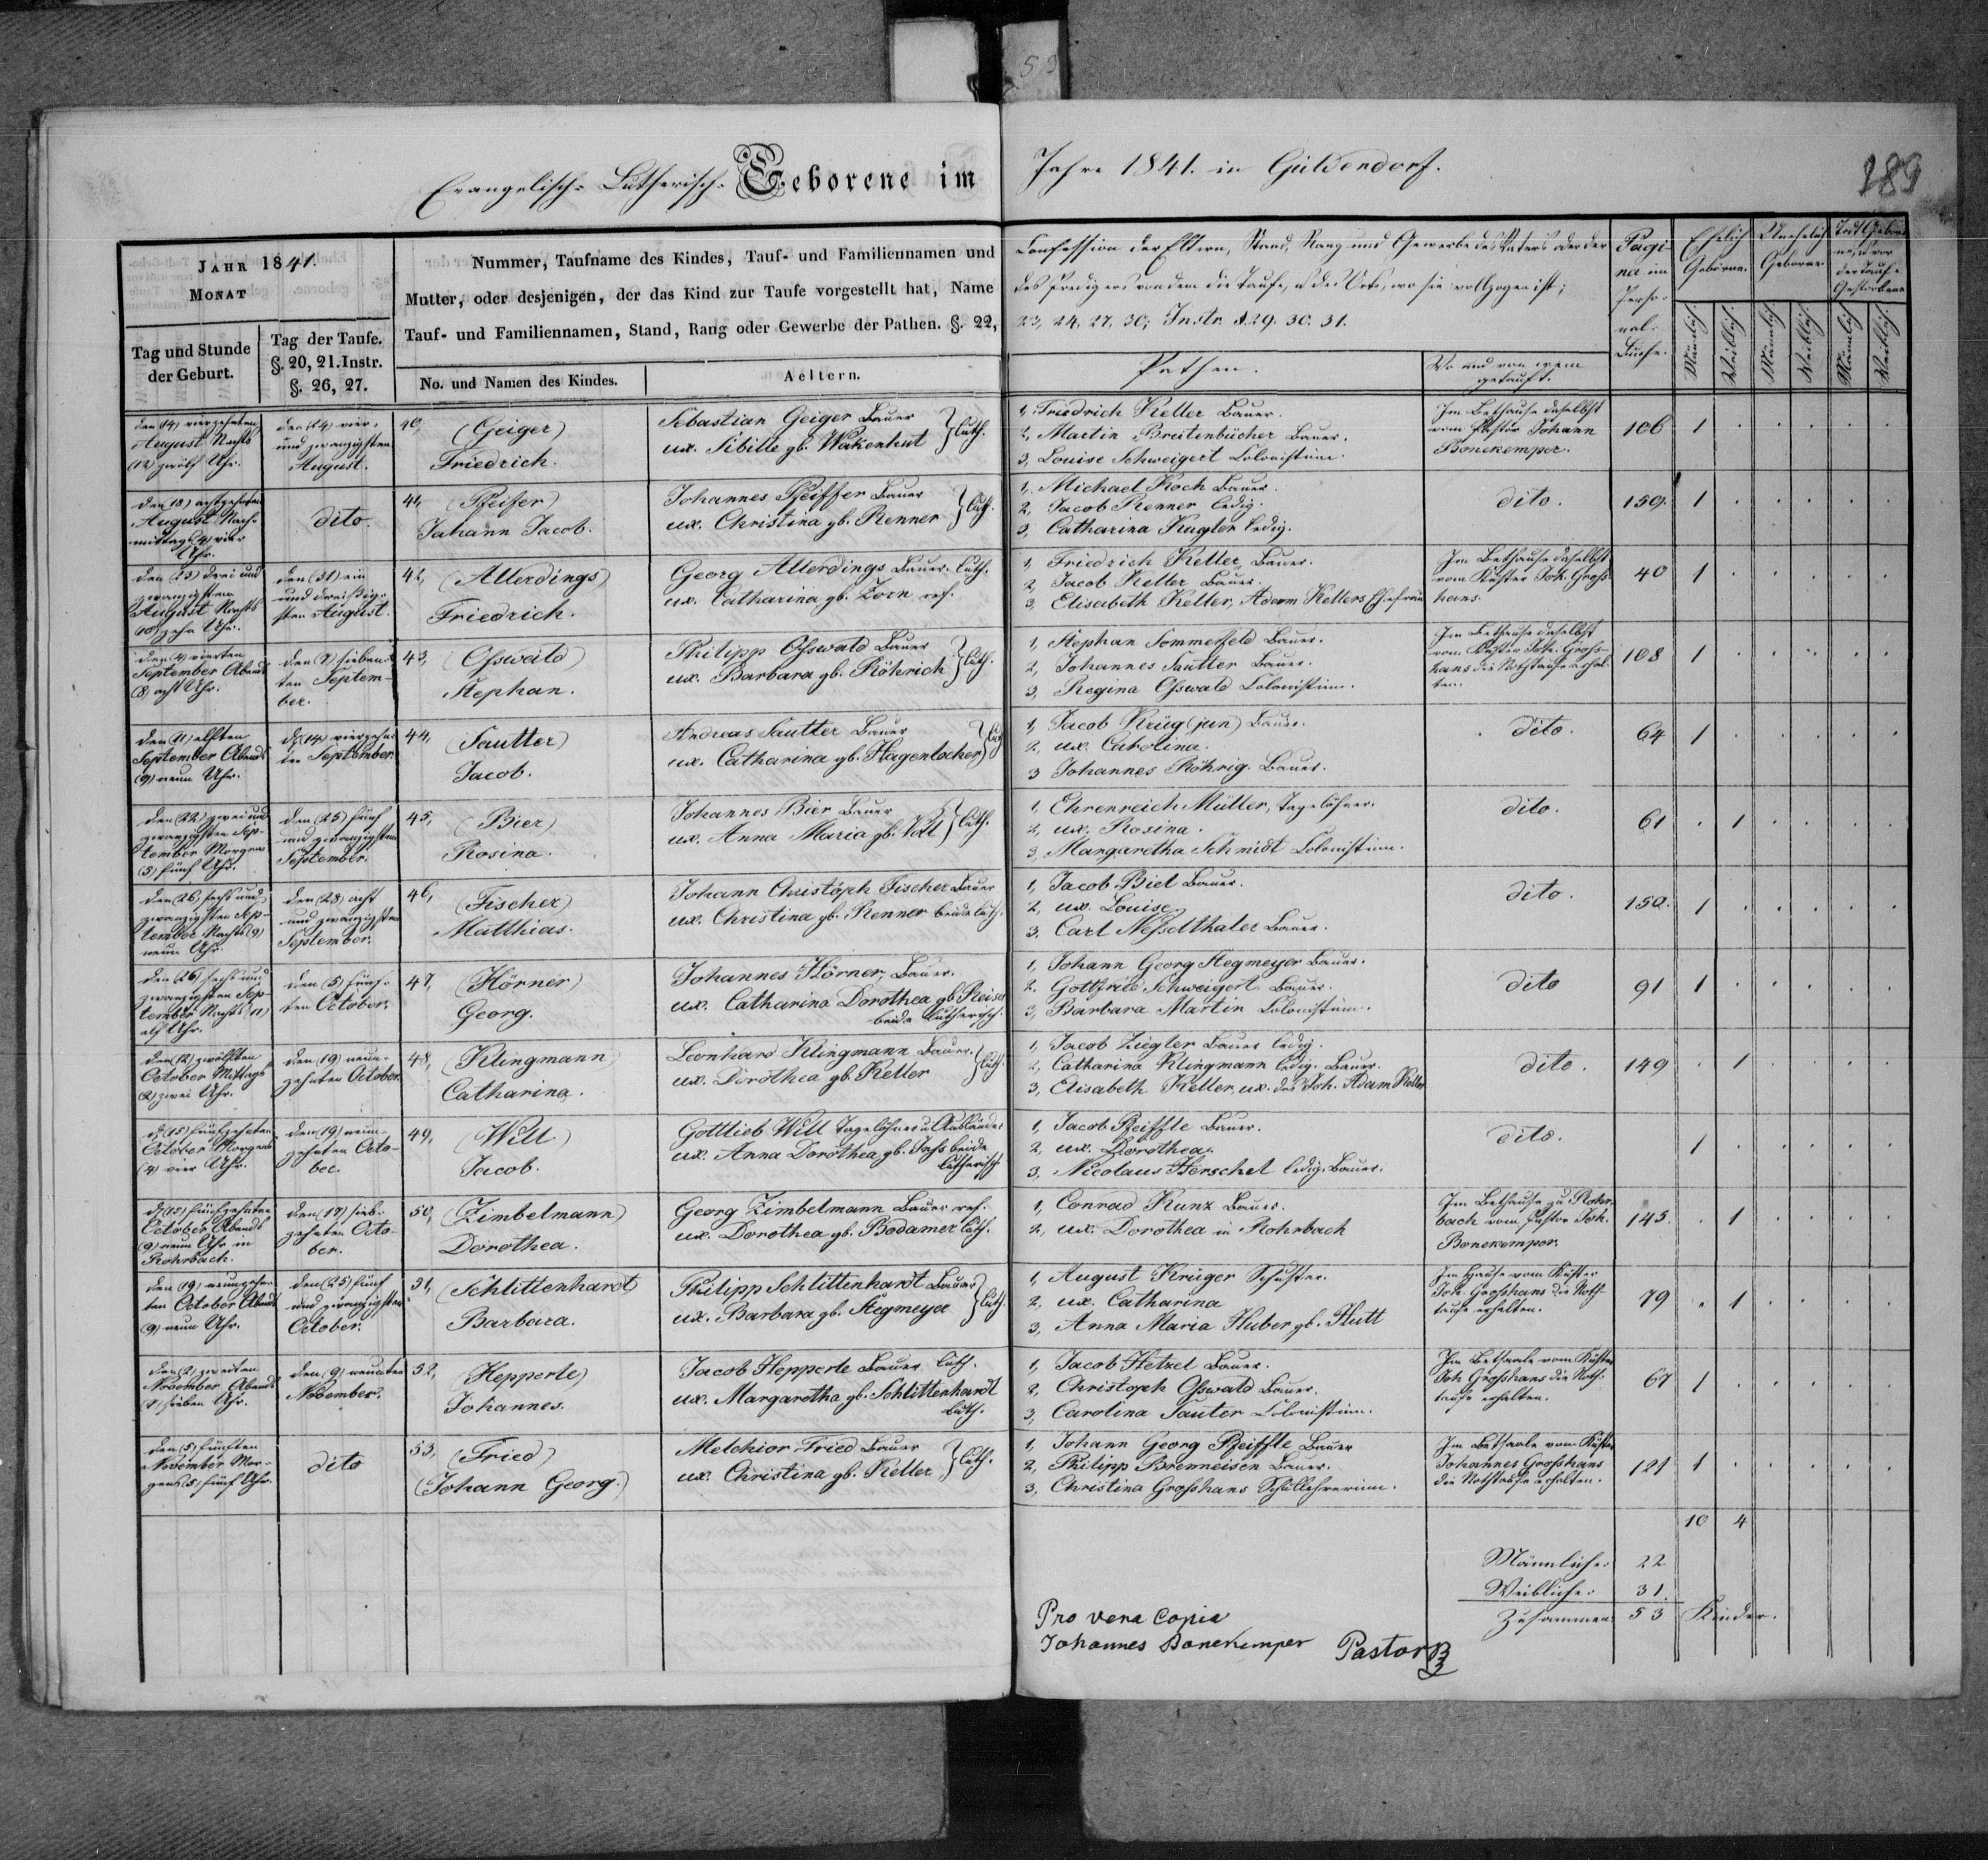 59
Evangelisch-Lutherisch-Geborene im Jahre 1841. in Güldendorf.
189
JAHR 1841.
MONAT
Tag und Stunde
der Geburt.
Tag der Taufe.
§. 20, 21. Instr.
§. 26, 27.
Nummer, Taufname des Kindes, Tauf- und Familiennamen und
Mutter, oder desjenigen, der das Kind zur Taufe vorgestellt hat, Name
Tauf- und Familiennamen, Stand, Rang oder Gewerbe der Pathen. §. 22,
No. und Namen des Kindes.
Aeltern.
Confession der Eltern, Stand, Rang und Gewerbe des Vaters oder der
des Predigers von dem die Taufe, u. des Orts, wo sie vollzogen ist;
23, 24, 27, 30; Instr. §. 29. 30. 31.
Pathen.
Wo und von wem
getauft.
Pagi-
na im
Perso-
nal-
Buche.
Ehelich
Geborne.
Unehelich
Geborne.
Todt Gebor-
ne, u. vor
der Taufe
Gestorbene
Mänlich.
Weiblich.
Mänlich.
Weiblich.
Mänlich.
Weiblich.
den (14) vierzehnten
August Nachts
(12) zwölf Uhr.
den (24) vier-
und zwanzigsten
August.
40, (Geiger)
Friedrich.
Sebastian Geiger Bauer
ux. Sibille gb. Wakenhut } Luth.
1, Friedrich Keller Bauer.
2, Martin Breitenbücher Bauer.
3, Louise Schweigert Colonistin.
Im Bethause daselbst
vom Pastor Johann
Bonekemper.
106 1 . . . . .
den (18) achtzehnten
August Nach-
mittags (4) vier
Uhr.
dito.
41, (Pfeifer)
Johann Jacob.
Johannes Pfeiffer Bauer
ux. Christina gb. Renner } Luth.
1, Michael Koch Bauer.
2, Jacob Renner ledig.
3, Catharina Kugler ledig.
dito.
159. 1 . . . . .
den (23) drei und
zwanzigsten
August Nachts
(10) zehn Uhr.
den (31) ein
und dreißig-
sten August.
42, (Allerdings)
Friedrich.
Georg Allerdings Bauer. Luth.
ux. Catharina gb. Zorn ref.
1, Friedrich Keller, Bauer.
2, Jacob Keller Bauer.
3, Elisabeth Keller, Adam Kellers Ehefrau
Im Bethause daselbst
vom Küster Joh. Groß-
hans.
40 1 . . . . .
den (4) vierten
September Abends
(8) acht Uhr.
den (7) sieben-
ten Septem-
ber.
43, (Oßwald)
Stephan.
Philipp Oßwald Bauer
ux. Barbara gb. Röhrich } Luth.
1, Stephan Sommerfeld Bauer.
2, Johannes Sautter Bauer.
3, Regina Oßwald Colonistin.
Im Bethause daselbst
vom Küster Joh. Groß-
hans die Nothtaufe erhal-
ten.
108 1 . . . . .
den (11) elften
September Abends
(9) neun Uhr.
d. (14) vierzehn-
ten September.
44, (Sautter)
Jacob.
Andreas Sautter Bauer
ux. Catharina gb. Hagenlocher } Luth
1, Jacob Krüg (jun) Bauer.
2, ux. Carolina.
3 Johannes Röhrig. Bauer.
dito.
64 1 . . . . .
den (22) zwei und
zwanzigsten Sep-
tember Morgens
(5) fünf Uhr.
den (25) fünf
und zwanzigsten
September.
45, (Bier)
Rosina.
Johannes Bier Bauer
ux. Anna Maria gb. } Luth.
1, Ehrenreich Müller, Tagelöhner.
2, ux. Rosina.
3, Margaretha Schmidt Colonistin.
dito.
61 . 1 . . . .
den (26) sechs und
zwanzigsten Sep-
tember Nachts (9)
neun Uhr.
den (28) acht
und zwanzigsten
September.
46, (Fischer)
Matthias.
Johann Christoph Fischer Bauer
ux. Christina gb. Renner beide Luth.
1, Jacob Biel Bauer.
2, ux. Louise.
3. Carl Neßelthaler Bauer.
dito.
150. 1 . . . . .
den (26) sechs und
zwanzigsten Sep-
tember Nachts (11)
elf Uhr.
den (5) fünf-
ten October.
47, (Hörner)
Georg.
Johannes Hörner, Bauer.
ux. Catharina Dorothea gb Reiser
beide Lutherisch.
1, Johann Georg Stegmeyer Bauer.
2. Gottfried Schweigert. Bauer.
3, Barbara Martin Colonistin.
dito
91 1 . . . . .
den (12) zwölften
October Mittags
(2) zwei Uhr.
den (19) neun-
zehnten October.
48, (Klingmann)
Catharina.
Leonhard Klingmann Bauer.
ux. Dorothea gb. Keller } Luth.
1, Jacob Ziegler Bauer ledig.
2, Catharina Klingmann ledig. Bauer.
3, Elisabeth Keller, ux. des Joh. Adam Keller
dito.
149 . 1 . . . .
d. (15) fünfzehnten
October Morgens
(4) vier Uhr.
den (19) neun-
zehnten Octo-
ber.
49, (Will)
Jacob.
Gottlieb Will Tagelöhner u. Ausländer
ux. Anna Dorothea, gb. beide
Lutherisch
1, Jacob Pfeiffle Bauer.
2, ux. Dorothea.
3, Nicolaus Herschel ledig. Bauer.
dito.
1 . . . . .
d. (15) fünfzehnten
October Abends
(9) neun Uhr in
Rohrbach.
den (17) sieb-
zehnten Octo-
ber.
50, (Zimbelmann)
Dorothea.
Georg Zimbelmann Bauer ref.
ux. Dorothea gb. Bodamer Luth.
1, Conrad Kunz Bauer.
2, ux. Dorothea in Rohrbach
Im Bethause zu Rohr-
bach vom Pastor Joh.
Bonekemper.
145. . 1 . . . .
den (19) neunzehn-
ten October Abends
(9) neun Uhr.
den (25) fünf
und zwanzigsten
October.
51, (Schlittenhardt)
Barbara.
Philipp Schlittenhardt Bauer
ux. Barbara gb. Stegmeyer } Luth.
1, August Krüger Schuster.
2, ux. Catharina
3, Anna Maria Huber, gb. Hutt
Im Hause vom Küster
Joh. Großhans die Noth-
taufe erhalten.
79 . 1 . . . .
den (2) zweiten
November Abends
(7) sieben Uhr.
den (9) neunten
November.
52, (Hepperle)
Johannes.
Jacob Hepperle Bauer Luth.
ux. Margaretha gb. Schlittenhardt
Luth.
1, Jacob Hetzel Bauer.
2, Christoph Oßwald Bauer.
3, Carolina Sauter Colonistin.
Im Betsaale vom Küster
Joh Großhans die Noth-
taufe erhalten.
67 1 . . . . .
den (5) fünften
November Mor-
gens (5) fünf Uhr.
dito
53, (Fried)
(Johann Georg.)
Melchior Fried Bauer
ux. Christina gb. Keller } Luth.
1, Johann Georg Pfeiffle Bauer
2, Philipp Brenneisen Bauer.
3, Christina Großhans Schullehrerin.
Im Betsaale vom Küster
Johannes Großhans
die Nothtaufe erhalten.
121 1 . . . . .
10 4
Männliche: 22
Weibliche: 31.
Zusammen: 53 Kinder.
Pro vera Copia
Johannes Bonekemper Pastor